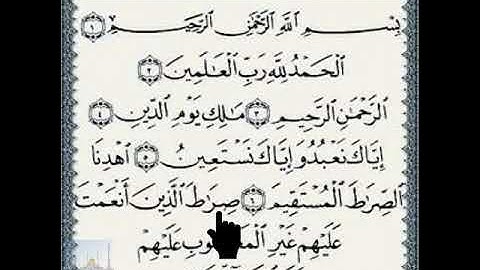 بِسْمِ ٱللَّهِ ٱلرَّحْمَٰنِ ٱلرَّحِيمِ ١
ٱلْحَمْدُ لِلَّهِ رَبِّ ٱلْعَٰلَمِينَ ٢
ٱلرَّحْمَٰنِ ٱلرَّحِيمِ ٣ مَٰلِكِ يَوْمِ ٱلدِّينِ ٤
إِيَّاكَ نَعْبُدُ وَإِيَّاكَ نَسْتَعِينُ ٥ ٱهْدِنَا
ٱلصِّرَٰطَ ٱلْمُسْتَقِيمَ ٦ صِرَٰطَ ٱلَّذِينَ أَنْعَمْتَ
عَلَيْهِمْ غَيْرِ عَلَيْهِمْ